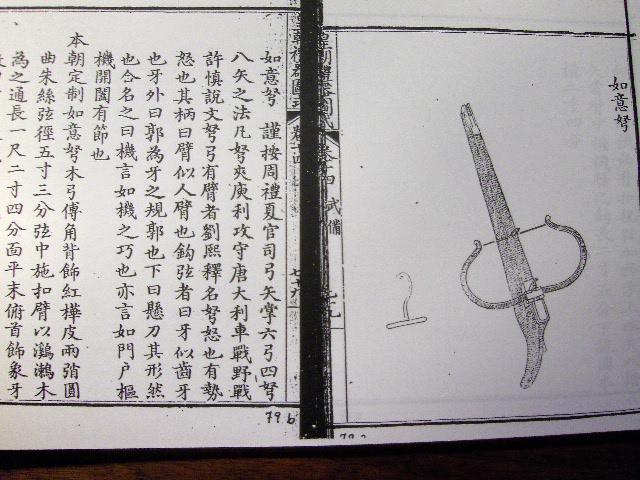 如意弩
皇朝禮器圖式
卷十四 武備
七十九
皇朝禮器圖式
卷十四
七十九
如意弩 謹按周禮夏官司弓矢掌六弓四弩
八矢之法凡弩夾庾利攻守唐大利車戰野戰
許慎說文弩弓有臂者劉熙釋名弩怒也有勢
怒也其柄曰臂似人臂也鈎弦者曰牙似齒牙
也牙外曰郭為牙之規郭也下曰懸刀其形然
也合名之曰機言如機之巧也亦言如門户樞
機開闔有節也
本朝定制如意弩木弓傅角背飾紅樺皮兩弰圓
曲朱絲弦徑五寸三分弦中施扣臂以鸂鶒木
為之通長一尺二寸四分面平末俯首飾象牙
79.b
79.a